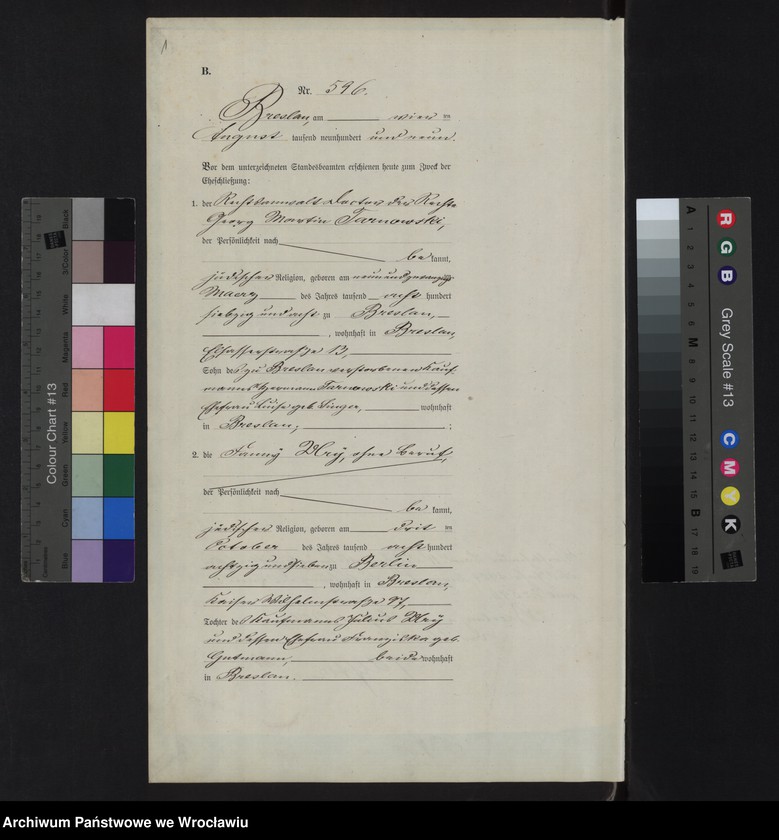 1
B.
Nr. 596.
Breslau, am vier ten
August tausend neunhundert und neun.
Vor dem unterzeichneten Standesbeamten erschienen heute zum Zweck der
Eheschließung:
1. der Rechtsanwalt Doctor der Rechte
Georg Martin Tarnowski,
der Persönlichkeit nach
be kannt,
jüdischer Religion, geboren am neunundzwanzig ten
Maerz des Jahres tausend acht hundert
siebzig und acht zu Breslau,
, wohnhaft in Breslau,
Elsasserstraße 13,
Sohn des zu Breslau verstorbenen Kauf-
manns Hermann Tarnowski und dessen
Ehefrau Luise geb. wohnhaft
in Breslau;
2. die Fanny Ury, ohne Beruf,
der Persönlichkeit nach
be kannt,
jüdischer Religion, geboren am drit ten
October des Jahres tausend acht hundert
achtzig und sieben zu Berlin
, wohnhaft in Breslau,
Kaiser Wilhelmstraße 97,
Tochter des Kaufmanns Julius Ury
und dessen Ehefrau Franziska geb.
Gutmann, beide wohnhaft
in Breslau.
Colour Chart #13
Blue
Cyan
Green
Yellow
Red
Magenta
White
3/Color
Black
R
G
B
Grey Scale #13
C
M
Y
K
A 1 2 3 4 5 6 M 8 9 10 11 12 13 14 15 B 17 18 19
Archiwum Państwowe we Wrocławiu